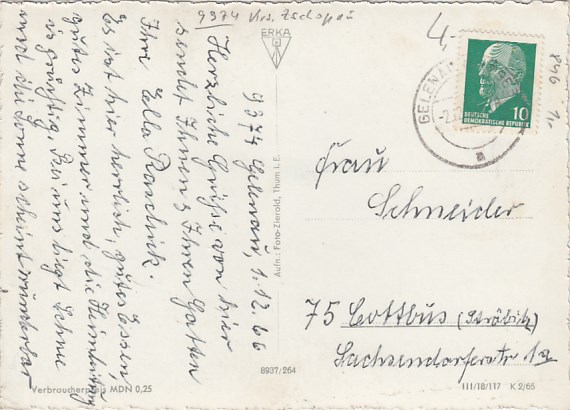 9374 Krs. Zschopau
9374 Gelenau, 1.12.66
Herzliche Grüße von hier
sendet Ihnen & Ihren Gatten
Ihre Ella
Es ist hier herrlich, gutes Essen
gutes Zimmer und die
ist günstig. Bei uns liegt Schnee
und die Sonne scheint wunderbar
Verbraucherpreis MDN 0,25
ERKA
Aufn.: Foto-Zierold, Thum i. E.
8937/264
4,-
GELENAU
10
DEUTSCHE
DEMOKRATISCHE REPUBLIK
Frau
Schneider
75 Cottbus (Ströbitz)
Sachsendorferstr 12
III/18/117 K 2/65